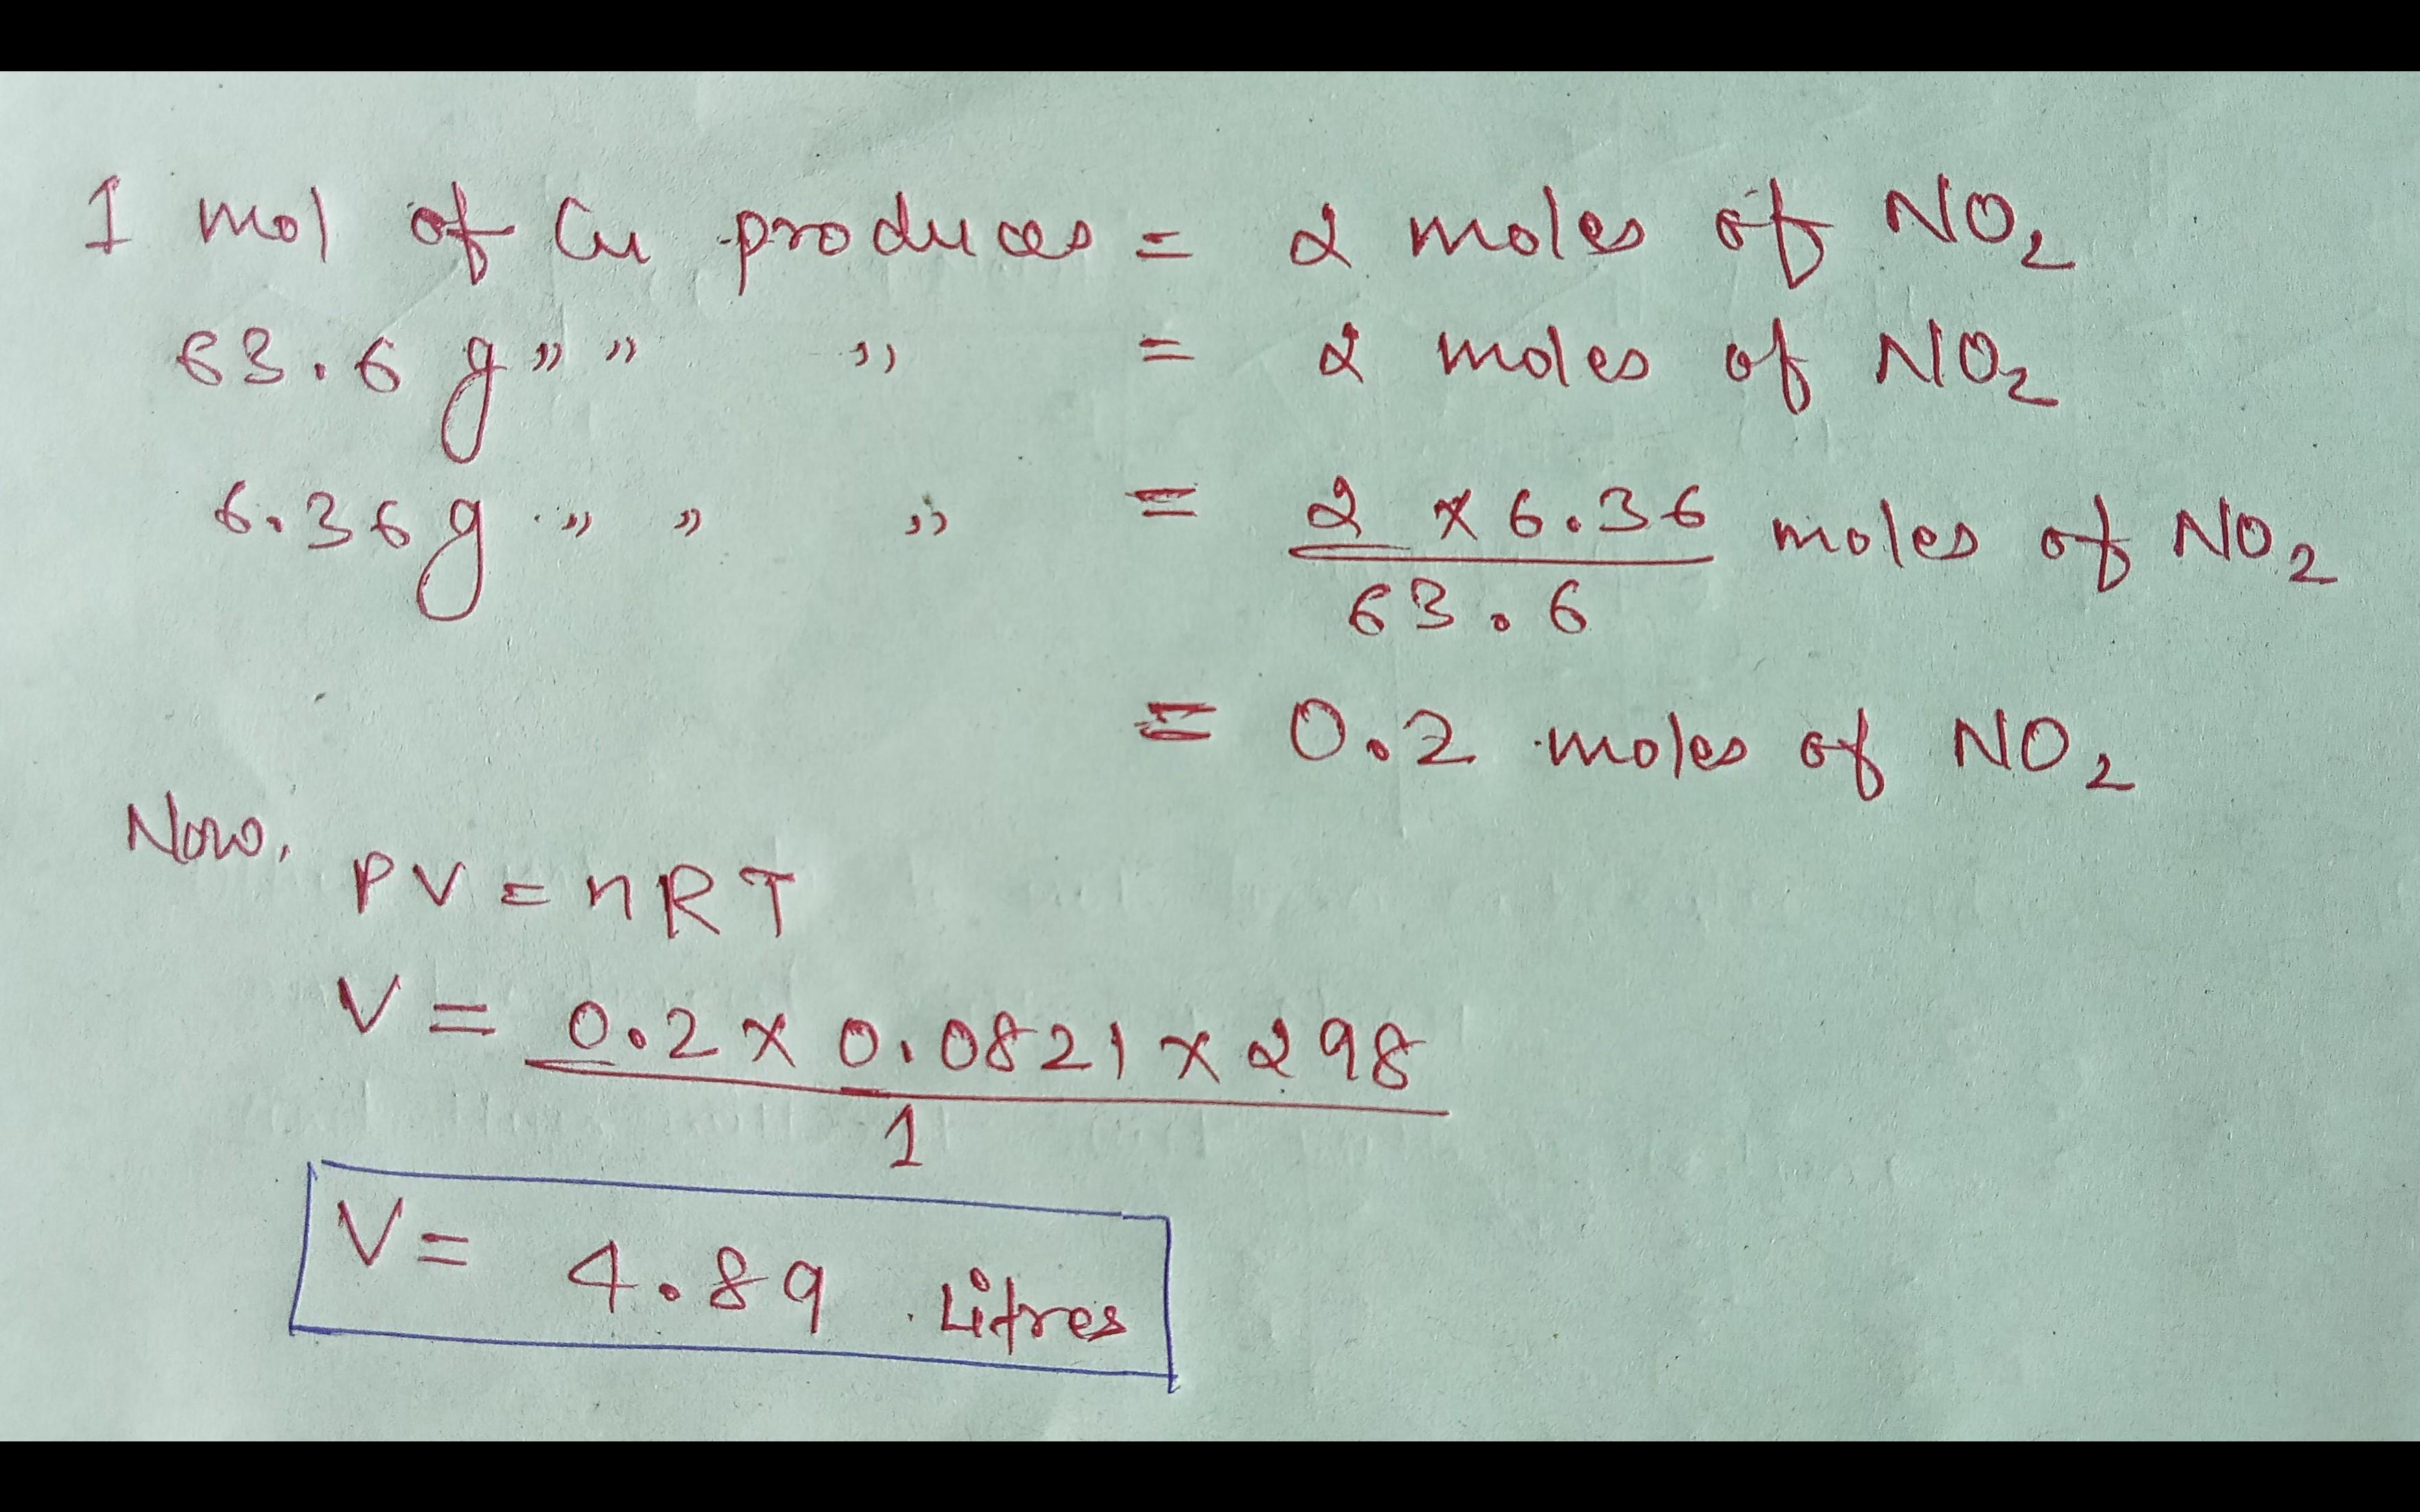 1 mol of Cu produces = 2 moles of NO₂
63.6 g " " " = 2 moles of NO₂
6.36g " " " = 2 x 6.36 / 63.6 moles of NO₂
= 0.2 moles of NO₂
Now,
PV = nRT
V = 0.2 x 0.0821 x 298 / 1
V = 4.89 Litres